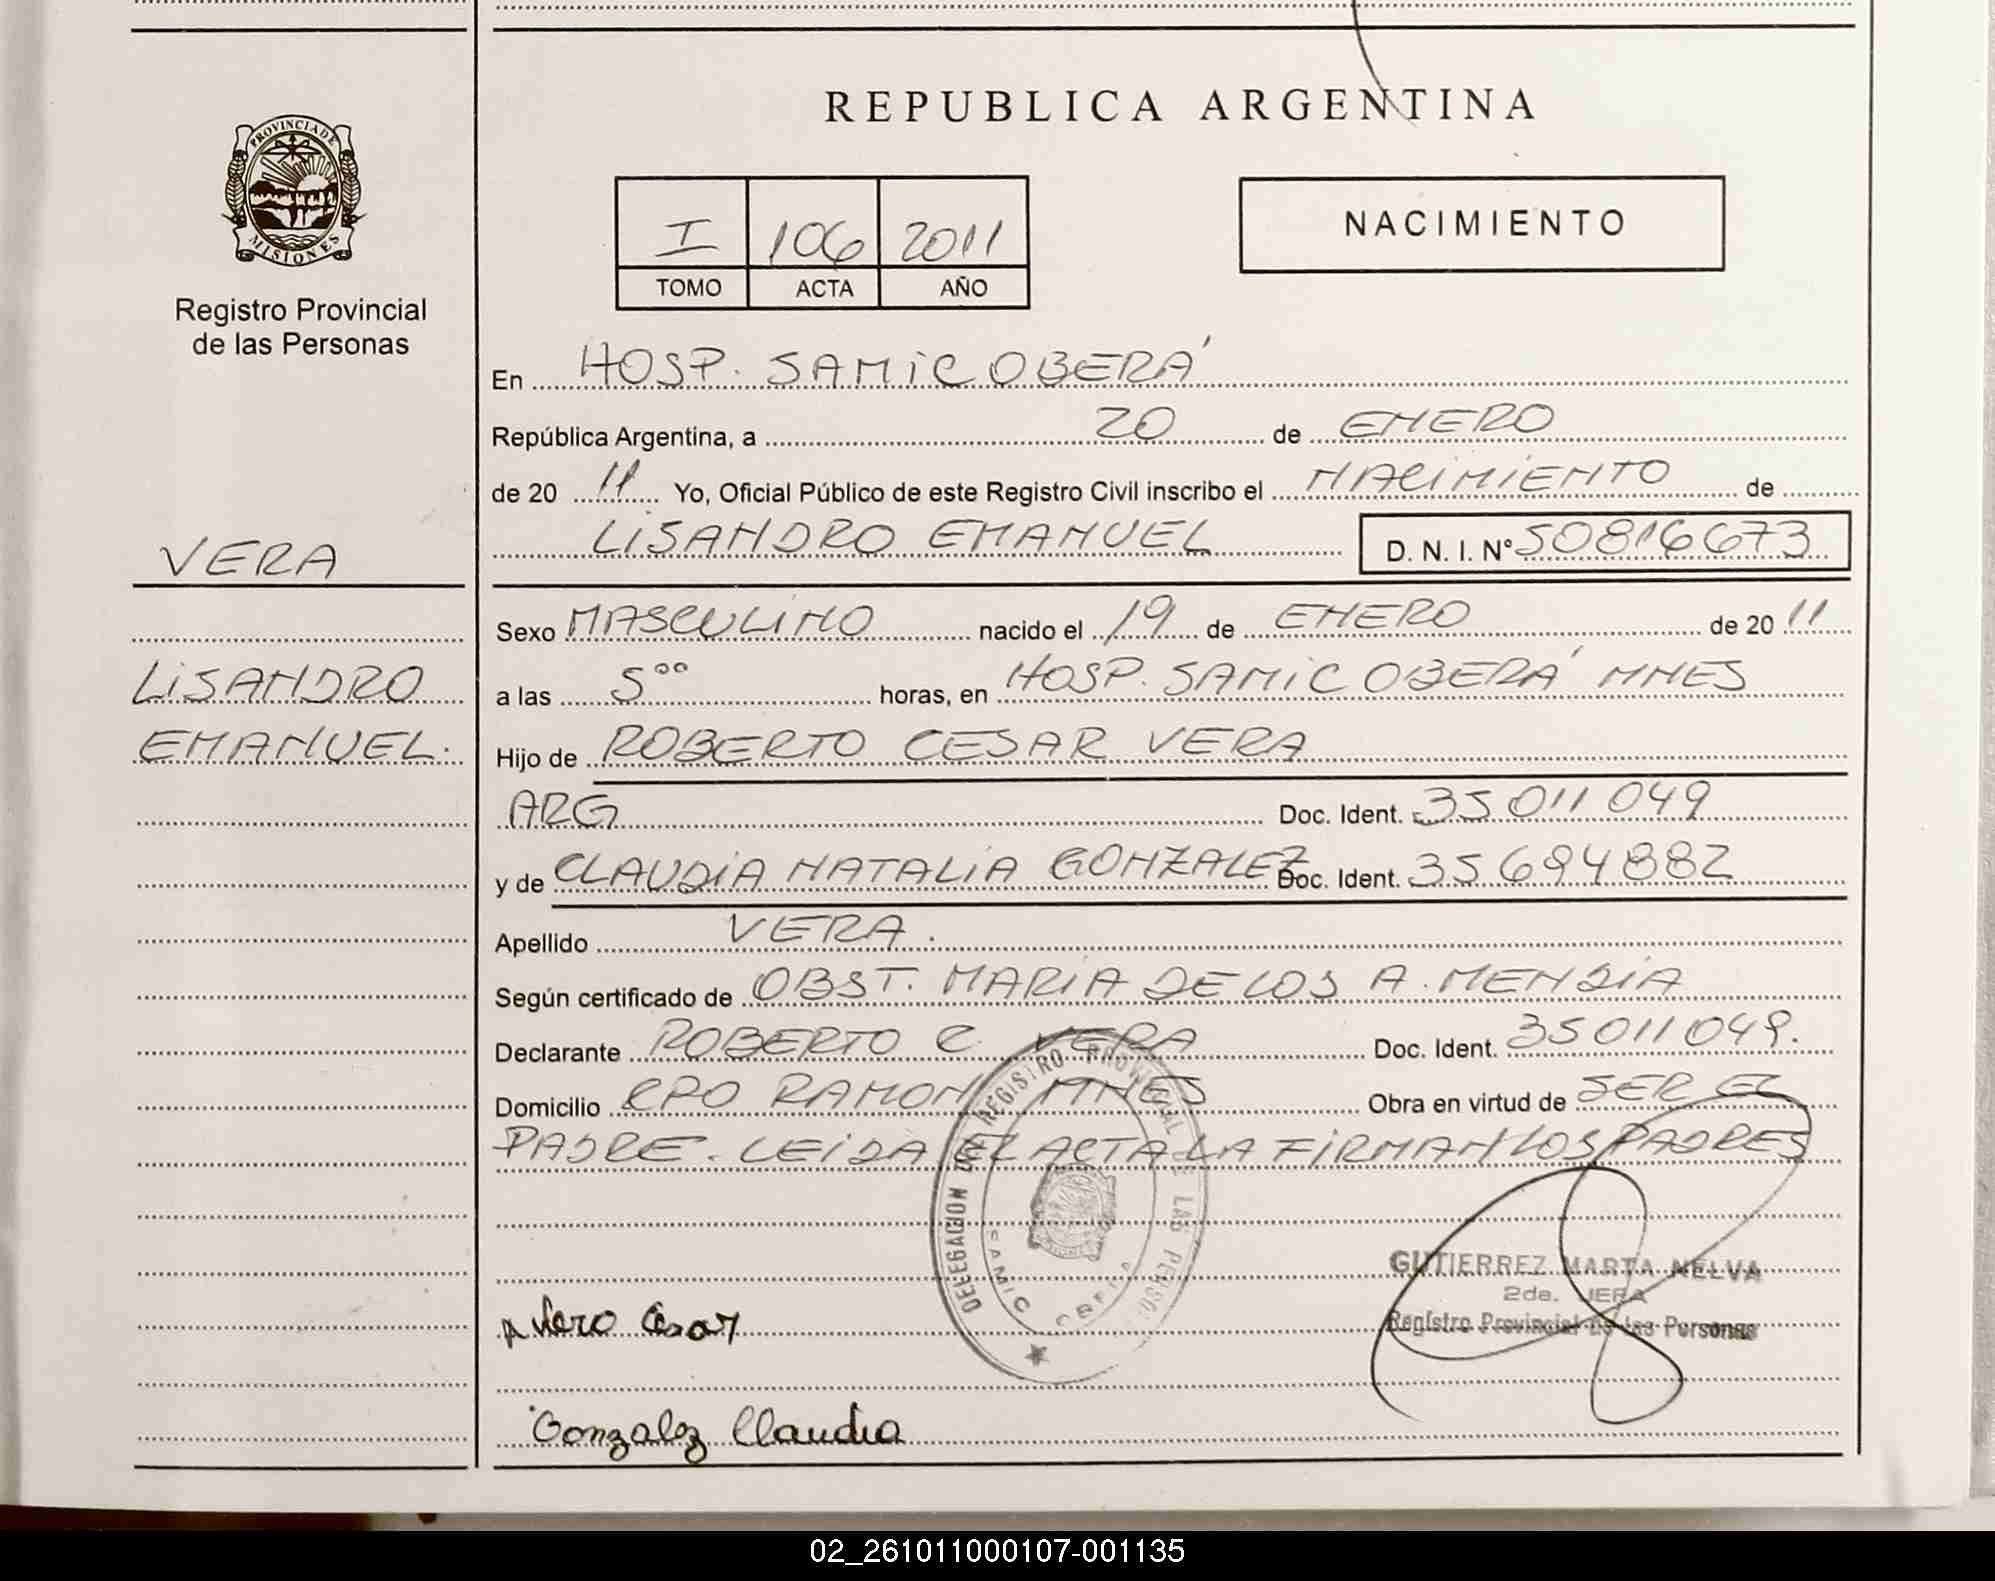 REPUBLICA ARGENTINA
PROVINCIA DE
MISIONES
Registro Provincial
de las Personas
I 106 2011
TOMO ACTA AÑO
NACIMIENTO
En HOSP. SAMIC OBERÁ
República Argentina, a 20 de ENERO
de 20 11 Yo, Oficial Público de este Registro Civil inscribo el NACIMIENTO de
VERA
LISANDRO EMANUEL D. N. I. N° 50816673
Sexo MASCULINO nacido el 19 de ENERO de 20 11
LISANDRO
a las 5°° horas, en HOSP. SAMIC OBERÁ MNES
EMANUEL.
Hijo de ROBERTO CESAR VERA
ARG Doc. Ident. 35 011 049
y de CLAUDIA NATALIA GONZALEZ Doc. Ident. 35 694 882
Apellido VERA.
Según certificado de OBST. MARIA DE LOS A. MENDIA
Declarante ROBERTO C. VERA Doc. Ident. 35 011 049.
Domicilio CPO RAMON MNES Obra en virtud de SER EL
PADRE. LEIDA EL ACTA LA FIRMAN LOS PADRES
DELEGACION DEL REGISTRO PROVINCIAL DE LAS PERSO
SAMIC OBERA
GUTIERREZ MARTA NELVA
2da. JEFA
Registro Provincial de las Personas
Vera Cesar
Gonzalez Claudia
02_261011000107-001135